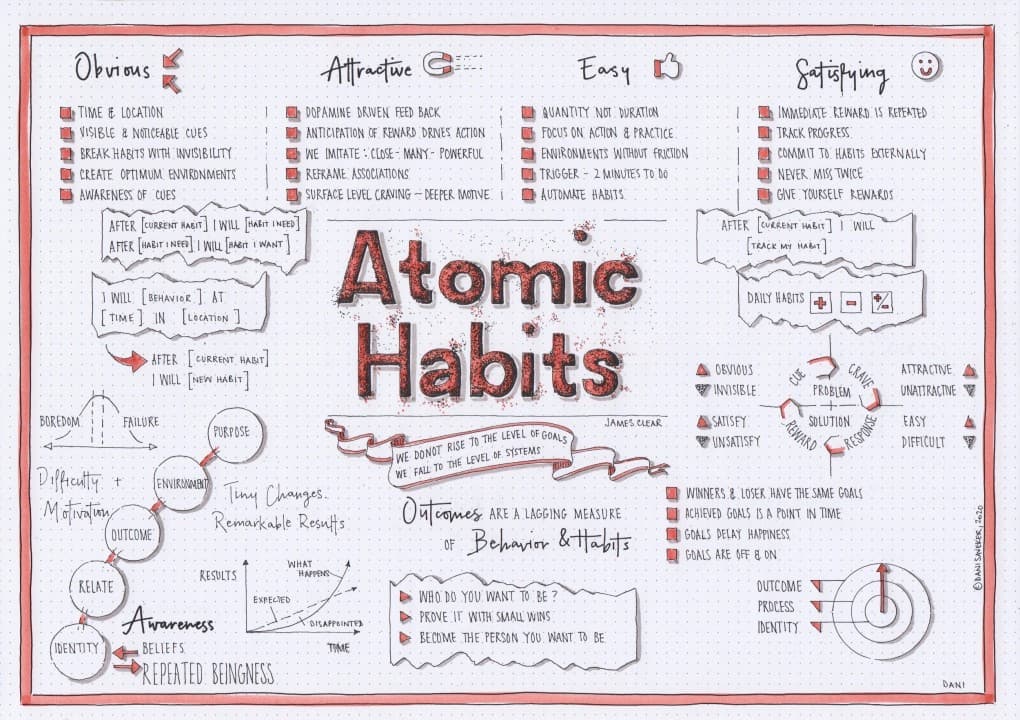 Obvious
TIME & LOCATION
VISIBLE & NOTICEABLE CUES
BREAK HABITS WITH INVISIBILITY
CREATE OPTIMUM ENVIRONMENTS
AWARENESS OF CUES
Attractive
DOPAMINE DRIVEN FEED BACK
ANTICIPATION OF REWARD DRIVES ACTION
WE IMITATE : CLOSE - MANY - POWERFUL
REFRAME ASSOCIATIONS
SURFACE LEVEL CRAVING - DEEPER MOTIVE
Easy
QUANTITY NOT DURATION
FOCUS ON ACTION & PRACTICE
ENVIRONMENTS WITHOUT FRICTION
TRIGGER - 2 MINUTES TO DO
AUTOMATE HABITS
Satisfying
IMMEDIATE REWARD IS REPEATED
TRACK PROGRESS
COMMIT TO HABITS EXTERNALLY
NEVER MISS TWICE
GIVE YOURSELF REWARDS
AFTER [CURRENT HABIT] I WILL [HABIT I NEED]
AFTER [HABIT I NEED] I WILL [HABIT I WANT]
I WILL [BEHAVIOR] AT
[TIME] IN [LOCATION]
AFTER [CURRENT HABIT]
I WILL [NEW HABIT]
Atomic
Habits
JAMES CLEAR
WE DONOT RISE TO THE LEVEL OF GOALS
WE FALL TO THE LEVEL OF SYSTEMS
AFTER [CURRENT HABIT] I WILL
[TRACK MY HABIT]
DAILY HABITS + - +/-
OBVIOUS
INVISIBLE
SATISFY
UNSATISFY
CUE
CRAVE
PROBLEM
SOLUTION
REWARD
RESPONSE
ATTRACTIVE
UNATTRACTIVE
EASY
DIFFICULT
BOREDOM
FAILURE
Difficulty +
Motivation
PURPOSE
ENVIRONMENT
OUTCOME
RELATE
IDENTITY
Tiny Changes.
Remarkable Results
RESULTS
WHAT
HAPPENS
EXPECTED
DISAPPOINTED
TIME
Awareness
BELIEFS
REPEATED BEINGNESS
Outcomes ARE A LAGGING MEASURE
OF Behavior & Habits
WHO DO YOU WANT TO BE ?
PROVE IT WITH SMALL WINS
BECOME THE PERSON YOU WANT TO BE
WINNERS & LOSER HAVE THE SAME GOALS
ACHIEVED GOALS IS A POINT IN TIME
GOALS DELAY HAPPINESS
GOALS ARE OFF & ON
OUTCOME
PROCESS
IDENTITY
© DANI SAVEKER, 2020
DANI